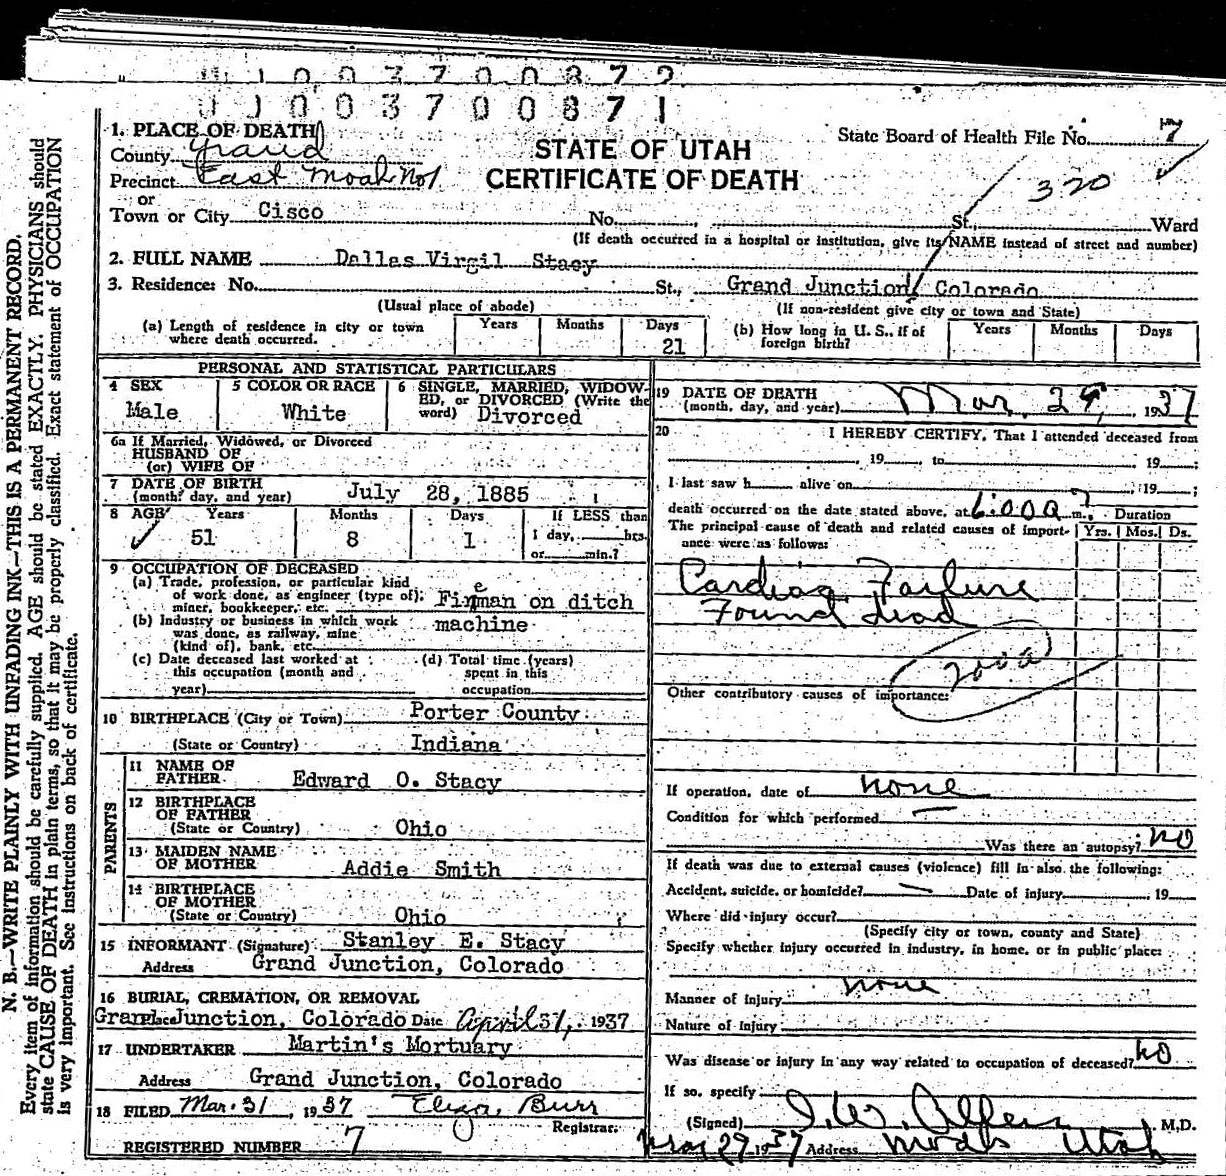 J J 0 0 3 7 0 0 8 7 2
J J 0 0 3 7 0 0 8 7 1
N. B.—WRITE PLAINLY WITH UNFADING INK—THIS IS A PERMANENT RECORD.
Every item of information should be carefully supplied. AGE should be stated EXACTLY. PHYSICIANS should
state CAUSE OF DEATH in plain terms, so that it may be properly classified. Exact statement of OCCUPATION
is very important. See instructions on back of certificate.
State Board of Health File No. 7
320
STATE OF UTAH
CERTIFICATE OF DEATH
1. PLACE OF DEATH
County Grand
Precinct East Moab No 1
or
Town or City Cisco No. St., Ward
(If death occurred in a hospital or institution, give its NAME instead of street and number)
2. FULL NAME Dallas Virgil Stacy
3. Residence: No. St., Grand Junction, Colorado
(Usual place of abode) (If non-resident give city or town and State)
(a) Length of residence in city or town where death occurred. Years Months Days 21
(b) How long in U. S., if of foreign birth? Years Months Days
PERSONAL AND STATISTICAL PARTICULARS
4 SEX Male
5 COLOR OR RACE White
6 SINGLE, MARRIED, WIDOWED, or DIVORCED (Write the word) Divorced
6a If Married, Widowed, or Divorced
HUSBAND OF
(or) WIFE OF
7 DATE OF BIRTH
(month, day, and year) July 28, 1885
8 AGE Years Months Days If LESS than
51 8 1 1 day, hrs.
or min.?
9 OCCUPATION OF DECEASED
(a) Trade, profession, or particular kind
of work done, as engineer (type of);
miner, bookkeeper, etc. Fireman on ditch
(b) Industry or business in which work machine
was done, as railway, mine
(kind of), bank, etc.
(c) Date deceased last worked at
this occupation (month and
year)
(d) Total time (years)
spent in this
occupation
10 BIRTHPLACE (City or Town) Porter County
(State or Country) Indiana
PARENTS
11 NAME OF
FATHER Edward O. Stacy
12 BIRTHPLACE
OF FATHER
(State or Country) Ohio
13 MAIDEN NAME
OF MOTHER Addie Smith
14 BIRTHPLACE
OF MOTHER
(State or Country) Ohio
15 INFORMANT (Signature) Stanley E. Stacy
Address Grand Junction, Colorado
16 BURIAL, CREMATION, OR REMOVAL
Place Grand Junction, Colorado Date April 31, 1937
17 UNDERTAKER Martin's Mortuary
Address Grand Junction, Colorado
18 FILED Mar. 31, 1937 Burr
Registrar.
REGISTERED NUMBER 7
19 DATE OF DEATH
(month, day, and year) Mar. 29, 1937
20 I HEREBY CERTIFY, That I attended deceased from
19 ; to 19 ;
I last saw h alive on , 19 ;
death occurred on the date stated above, at 6:00 m.; Duration
The principal cause of death and related causes of importance were as follows: Yrs. Mos. Ds.
Cardiac Failure
Found dead
Other contributory causes of importance:
If operation, date of none
Condition for which performed —
Was there an autopsy? no
If death was due to external causes (violence) fill in also the following:
Accident, suicide, or homicide? — Date of injury 19
Where did injury occur?
(Specify city or town, county and State)
Specify whether injury occurred in industry, in home, or in public place:
Manner of Injury none
Nature of Injury
Was disease or injury in any way related to occupation of deceased? no
If so, specify
(Signed) I. W. Allen M.D.
Mar 29 1937 Address Moab Utah